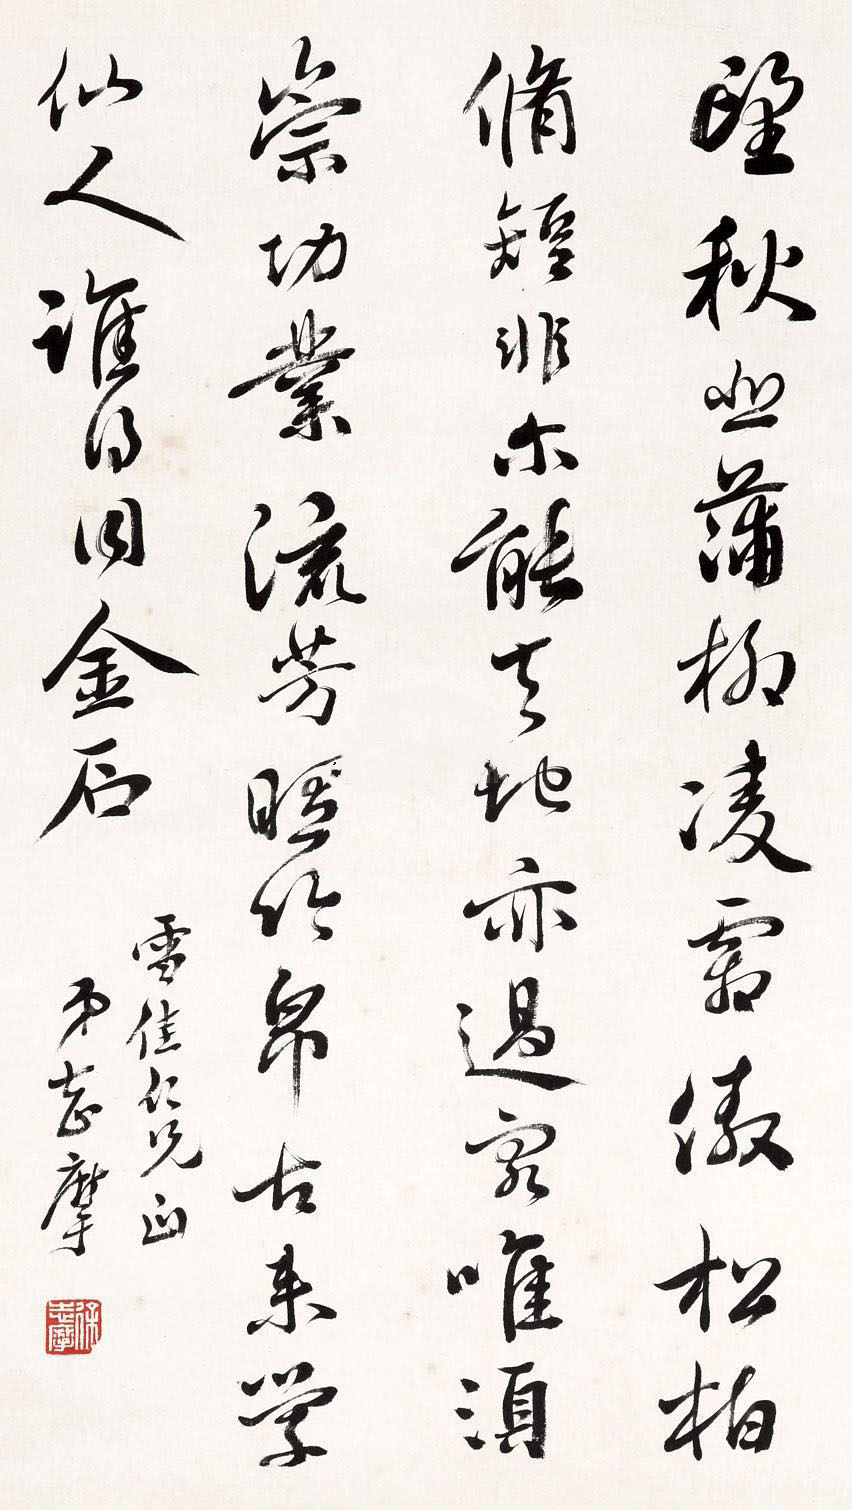 望秋悲蒲柳凌霜傲松柏
脩短非尔能天地亦過客唯須
崇功業流芳賸竹帛古来学
仙人誰得同金石
雪佳仁兄正
弟志摩
徐志摩